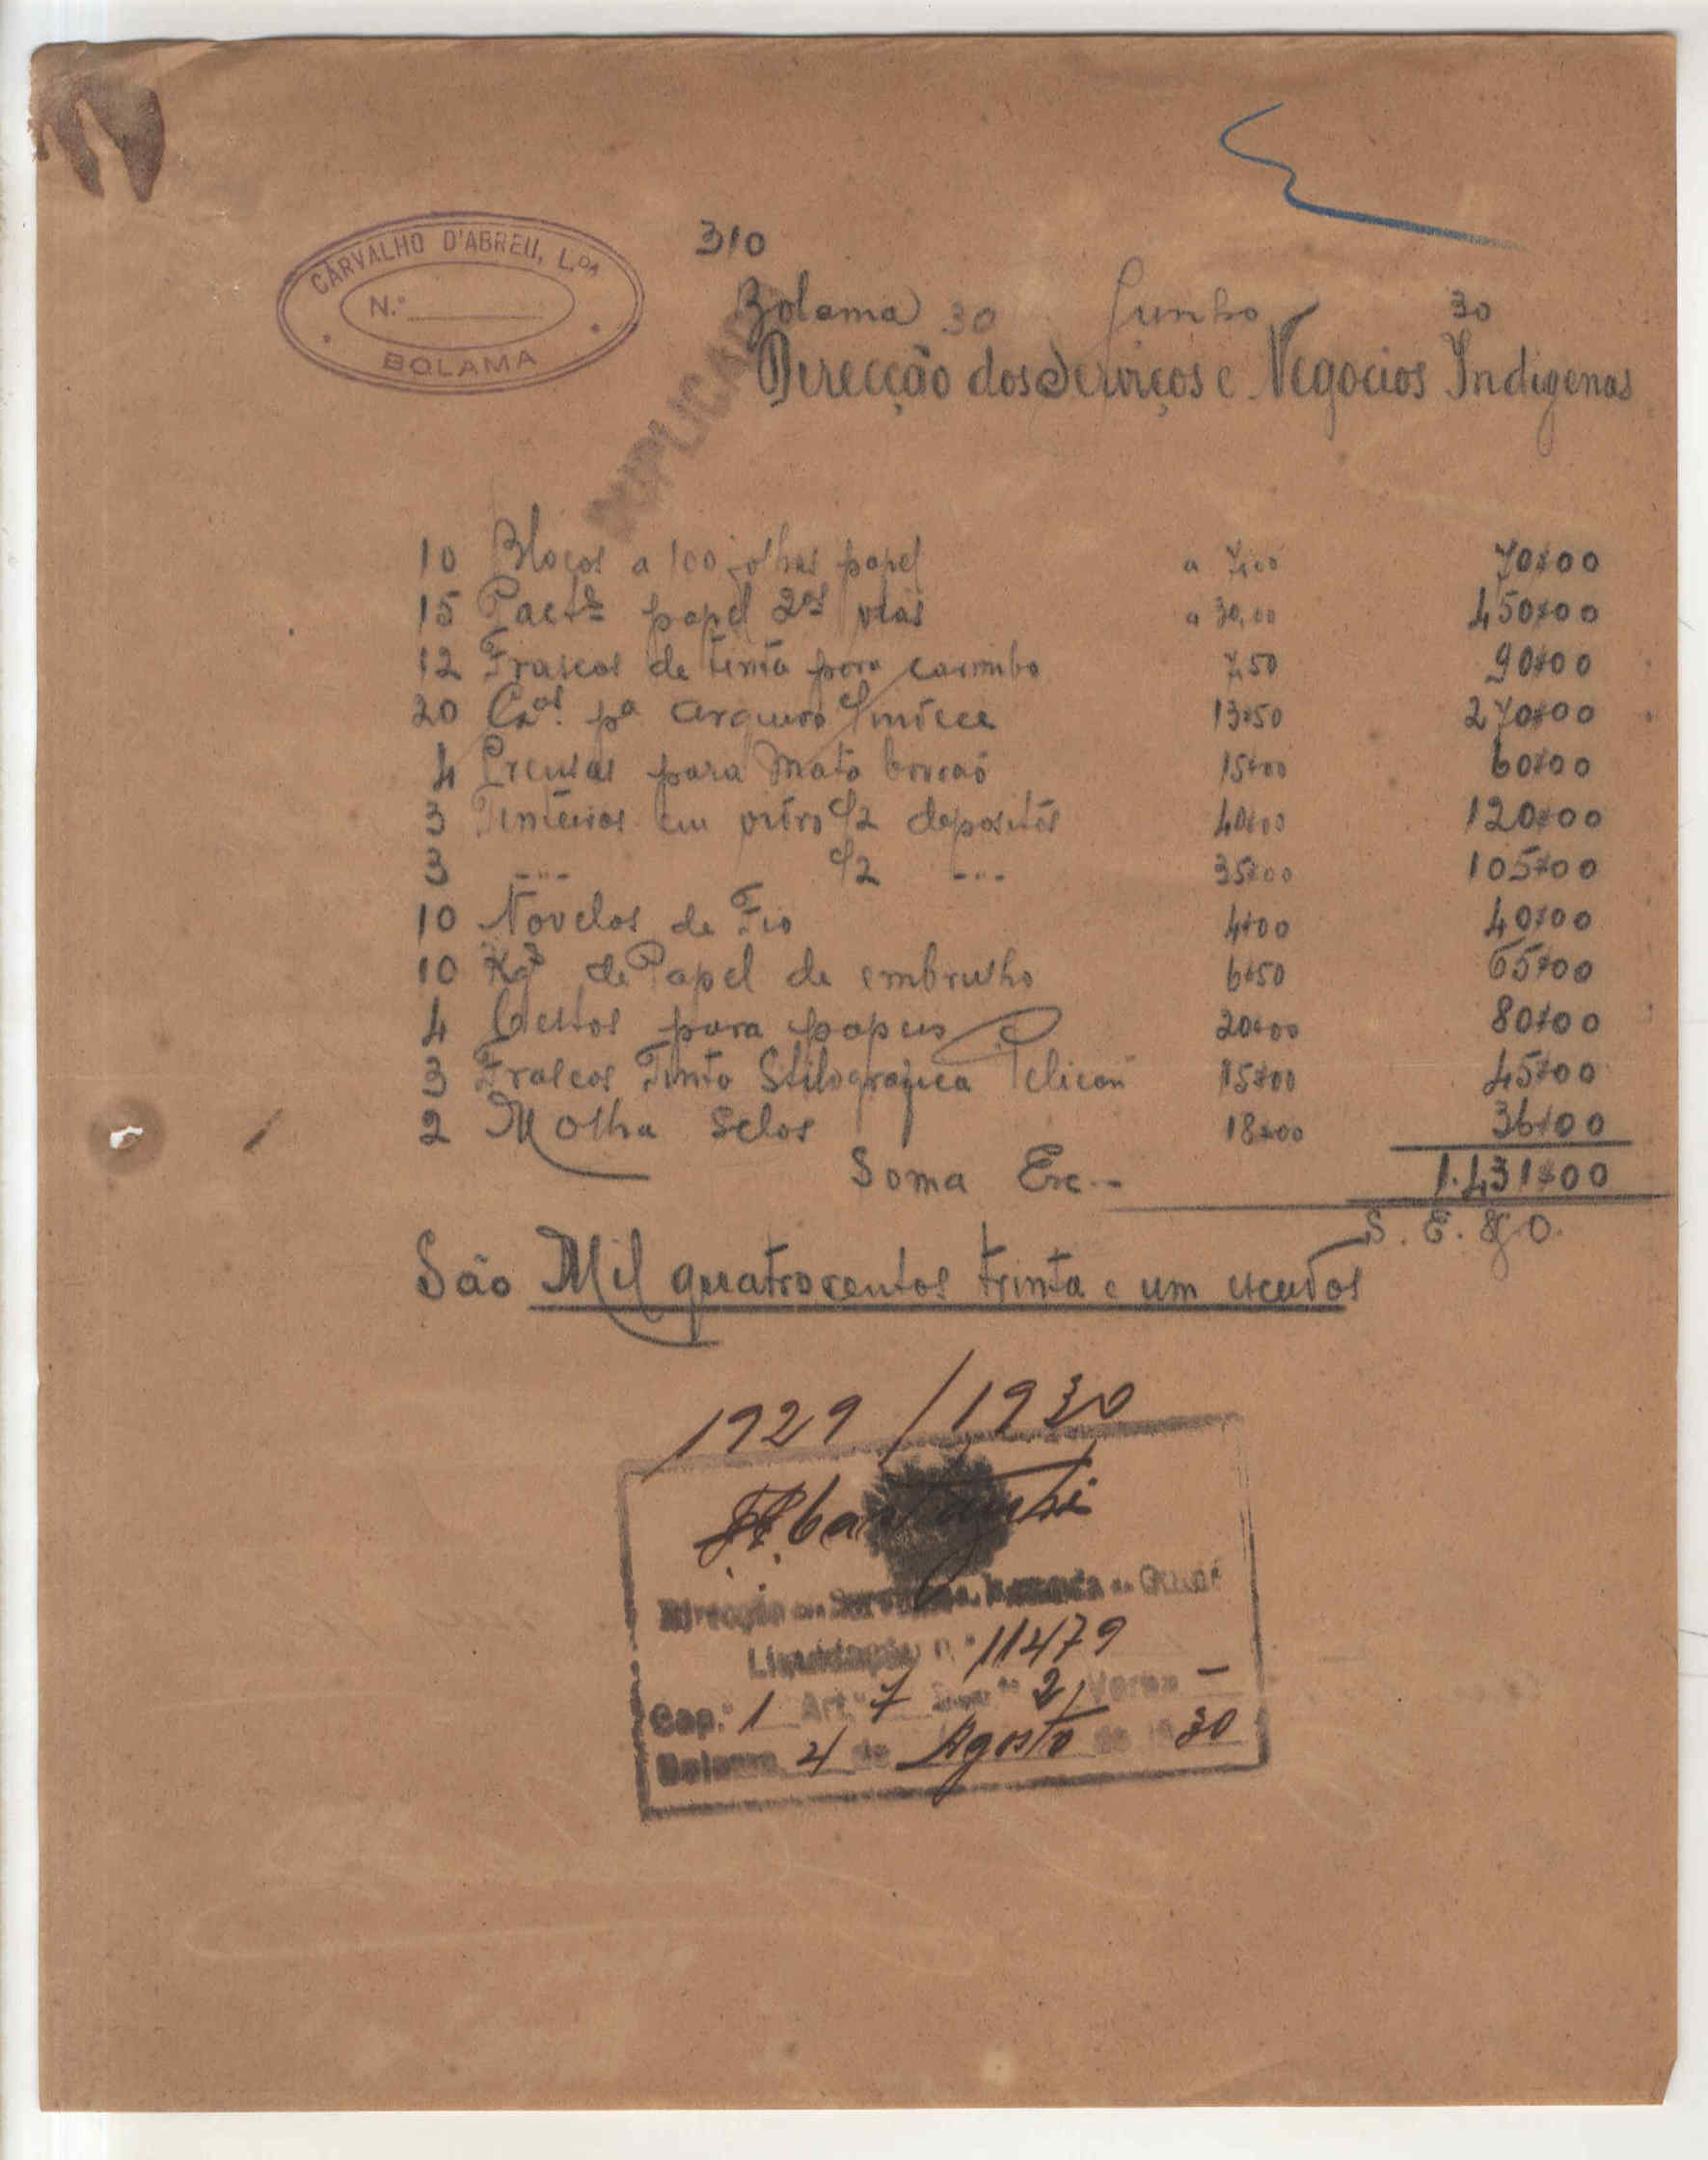 CARVALHO D'ABREU, L.DA
N.º
BOLAMA
310
Bolama 30 Junho 30
DUPLICADO
Direcção dos Serviços e Negocios Indigenas
10 Blocos a 100 folhas papel a 7,00 70$00
15 Pact.s papel 2as vias a 30,00 450$00
12 Frascos de tinta para carimbo 7,50 90$00
20 Cxas. pa arquivo c/ indece 13$50 270$00
4 Prensas para Mata borrão 15$00 60$00
3 Tinteiros em vidro c/2 depositos 40$00 120$00
3 -"- c/2 -"- 35$00 105$00
10 Novelos de Fio 4$00 40$00
10 Kgs de Papel de embrulho 6$50 65$00
4 Cestos para papeis 20$00 80$00
3 Frascos Tinta Stilografica Pelican 15$00 45$00
2 Molha Selos 18$00 36$00
Soma Esc.-- 1.431$00
S. E. & O.
São Mil quatrocentos trinta e um escudos
1929/1930
Direcção dos Serviços de Fazenda da Guiné
Liquidação n.º 11479
Cap.º 1 Art.º 7 2 Verba -
Bolama 4 de Agosto de 19 30